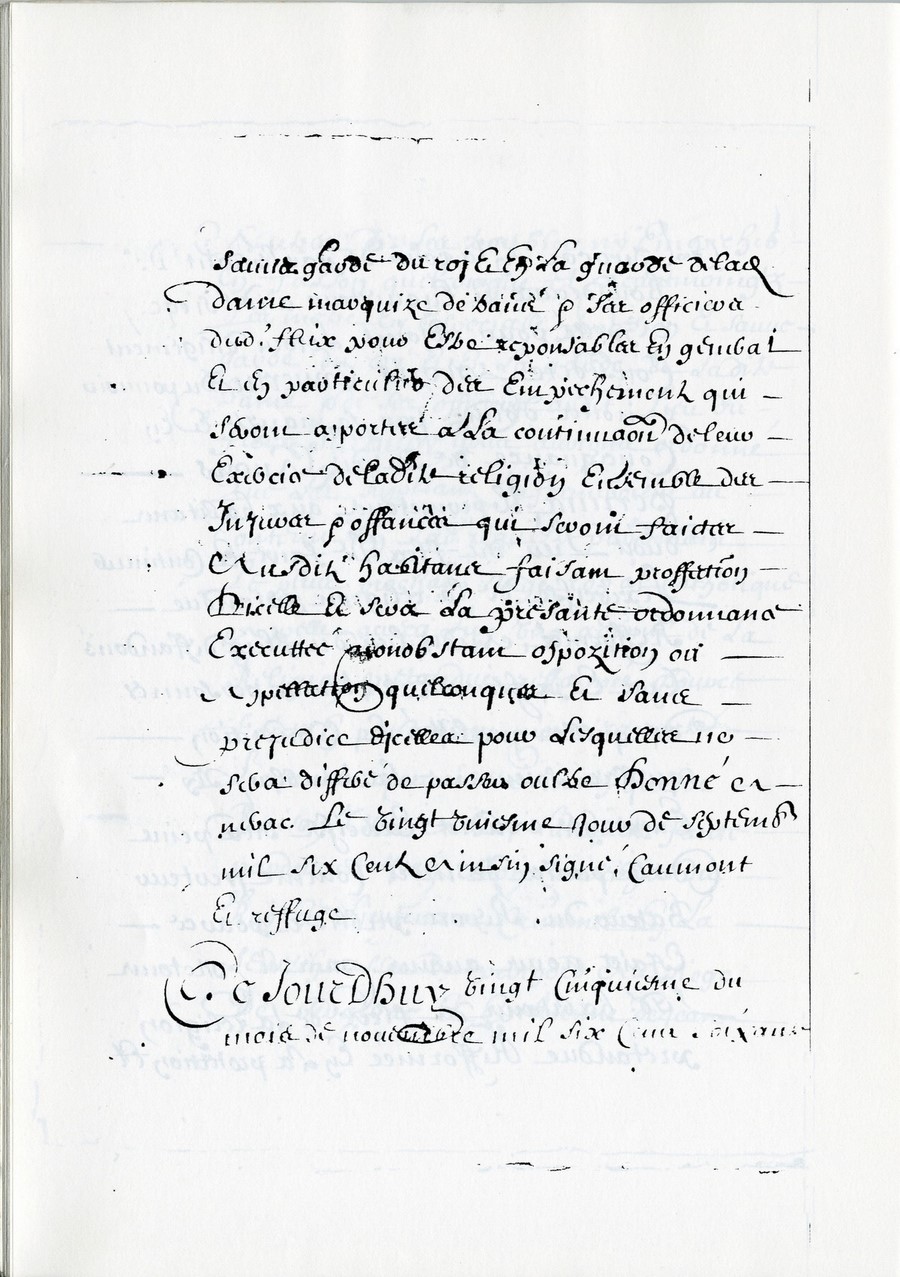 sauve garde du roi Et En La guarde delad
Dame marquize de p Les officiers
dud. pour Estre reponsables En general
Et En particulier des Empechement qui
seront aporttes a La continuaon de leur
Exercice deladite religion Ensemble des
Injures p offances qui seront faictes
Ausdits habitans faisant proffettion
Dicelle Et sera La presante ordonnance
Executtee nonobstant opozition ou
Appellation quelconques Et sans
prejudice dicelles pour Lesquelles ne
sera differé de passer oultre Donné a
nerac Le vingt jour de septemb
mil six Cent signé, Caumont
Et reffuge
Ce JourDhuy vingt Cinquiesme du
mois de novembre mil six Cent soixante